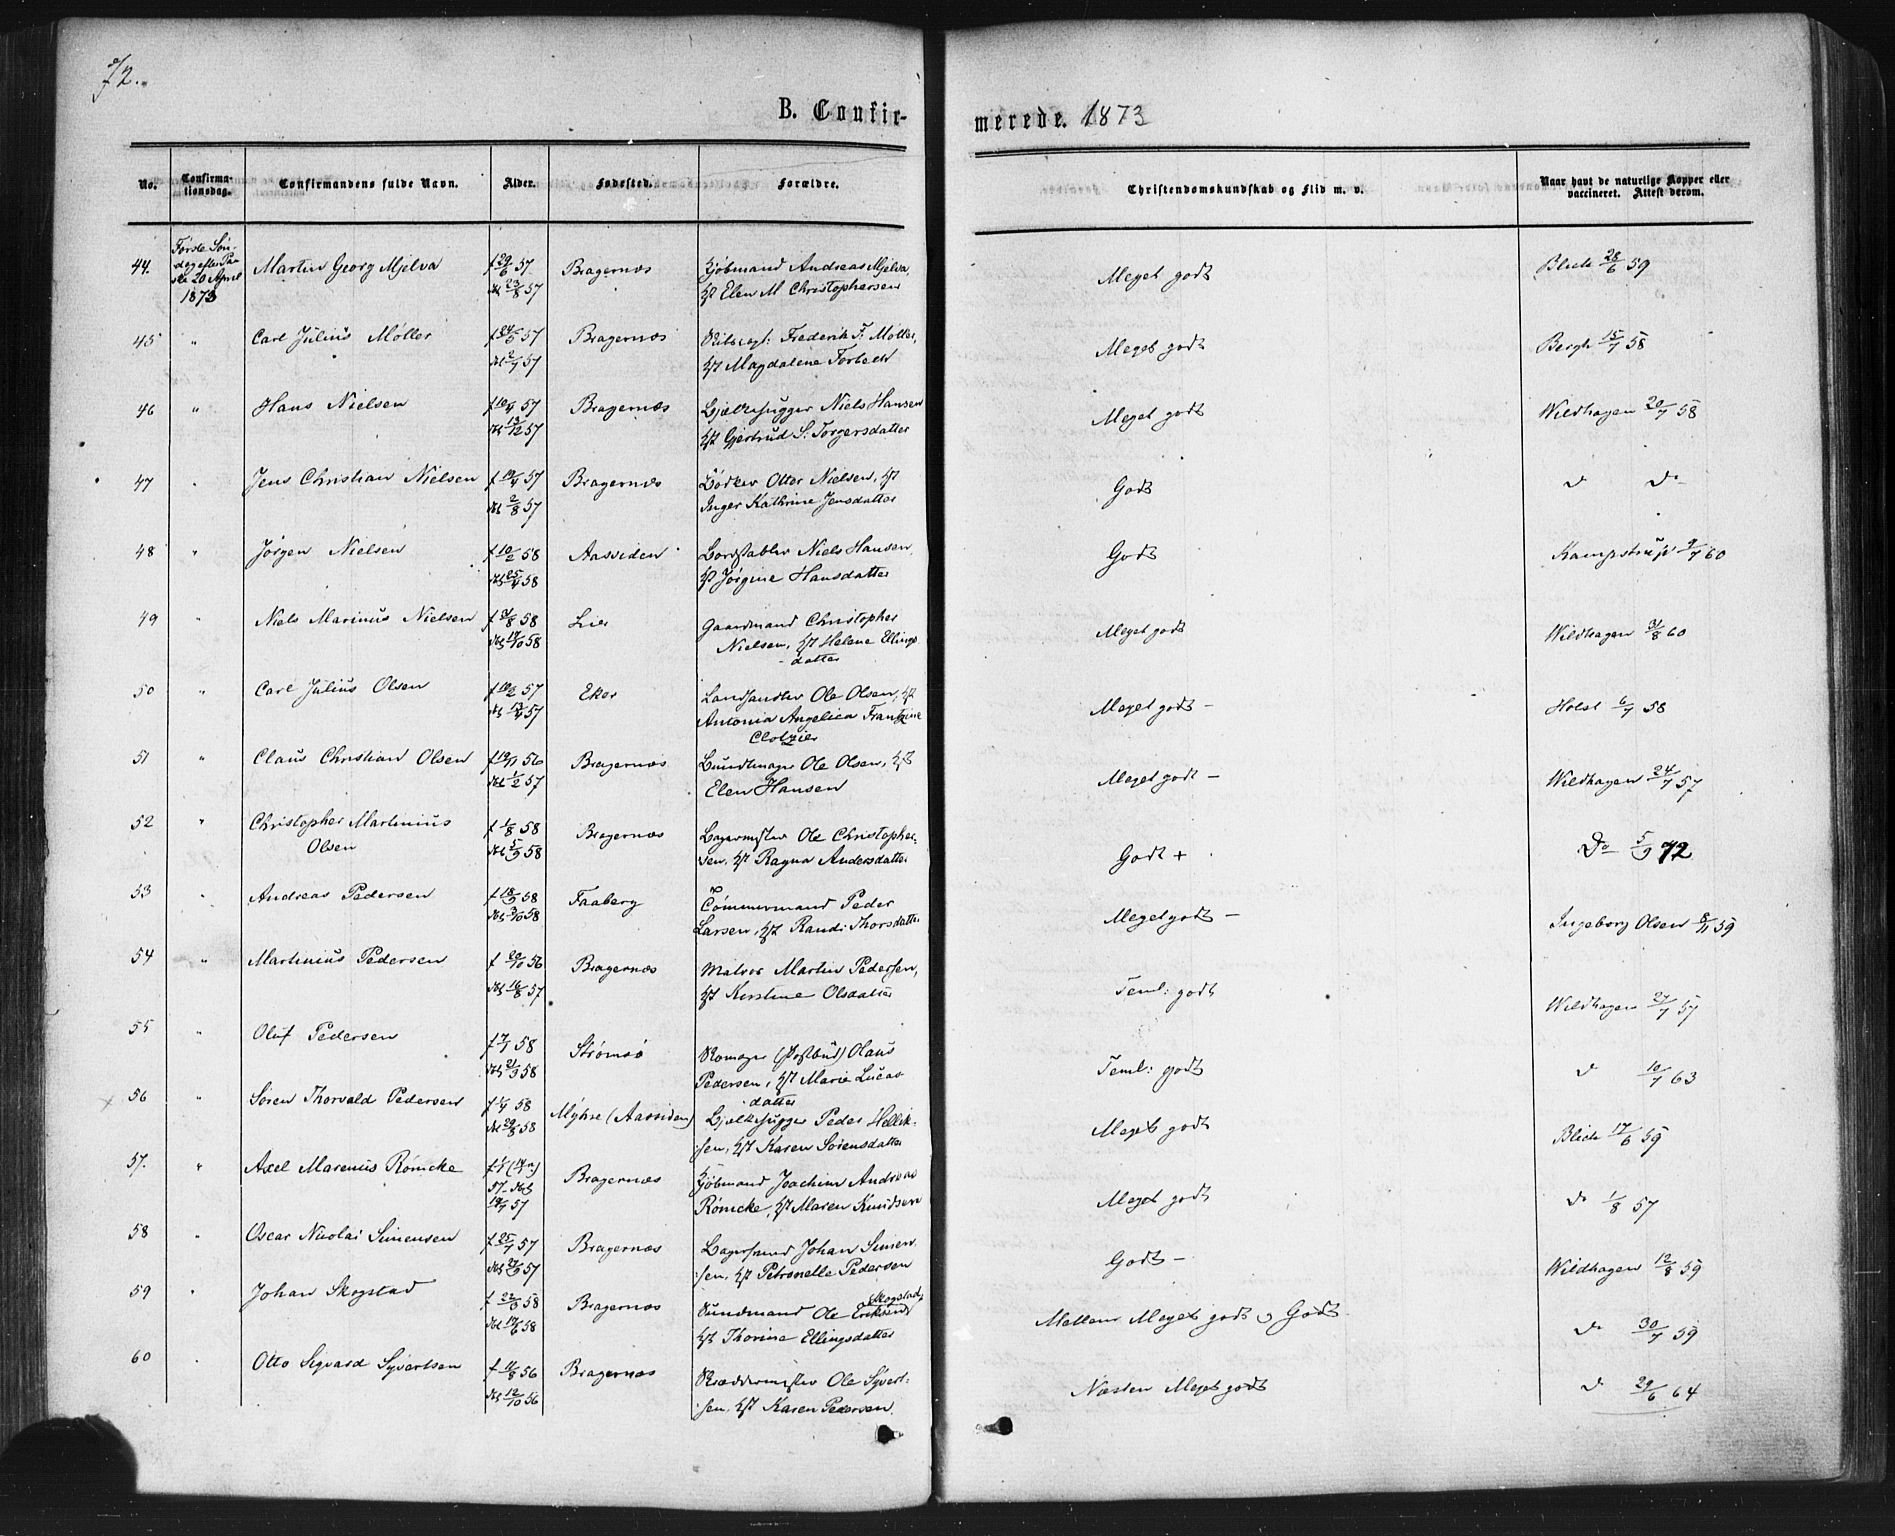 72.
B. Confir-
merede. 1873
No. Confirma-tionsdag. Confirmandens fulde Navn. Alder. Fødested. Forældre. Christendomskundskab og Flid m. v. Naar havt de naturlige Kopper eller vaccineret. Attest derom.
44. Første Søn-dag efter Paa-ske 20 April 1873 Martin Georg Mjelva f 29/6 57 Bragernæs Kjøbmand Andreas Mjelva, Meget godt Blich 28/6 59
23/8 57 Elen M Christophersen
45 " Carl Julius Møller 57 Bragernæs Frederik F. Møller, Meget godt Bergh 15/7 58
2/7 57 Magdalene
46 " Hans Nielsen f 10/4 57 Bragernæs Niels Hansen Meget godt Wildhagen 20/7 58
13/12 57 Gjertrud S. Torgersdatter
47 " Jens Christian Nielsen f 19/4 57 Bragernæs Bødker Otter Nielsen, Godt Do Do
2/8 57 Inger Kathrine Jensdatter
48 " Jørgen Nielsen f 10/2 58 Aassiden Bordstabler Niels Hansen, Godt Kampstrup 9/7 60
25/4 58 Jørgine Hansdatter
49 " Niels Marinus Nielsen f 31/8 58 Lier Gaardmand Christopher Meget godt Wildhagen 31/8 60
19/10 58 Nielsen, Helene Ellings-
datter
50 " Carl Julius Olsen 57 Eker Landhandler Ole Olsen, Meget godt - Holst 6/7 58
13/4 57 Antonia Angelica Frantzine
51 " Claus Christian Olsen 56 Bragernæs Bundtmager Ole Olsen, Meget godt - Wildhagen 24/7 57
1/2 57 Elen Hansen
52 " Christopher Martinius f 1/8 58 Bragernæs Ole Christopher- Godt + Do 5/9 72
Olsen 5/9 58 sen, Ragna Andersdatter
53 " Andreas Pedersen 58 Faaberg Tømmermand Peder Meget godt - Ingeborg Olsen 8/11 59
3/10 58 Larsen, Randi Thorsdatter
54 " Martinius Pedersen f 20/10 56 Bragernæs Matros Martin Pedersen, Teml: godt Wildhagen 27/7 57
16/8 57 Kirstine Olsdatter
55 " Oluf Pedersen 58 Strømsø (Postbud) Olaus Teml: godt Do 10/7 63
21/3 58 Pedersen, Marie Lucas-
datter
56 " Søren Thorvald Pedersen f 1/4 58 Myhre (Aassiden) Peder Hellik- Meget godt Blich 17/6 59
29/8 58 sen, Karen Sørensdatter
57. " Axel Marenius Rønicke Bragernæs Kjøbmand Joachim Andreas Meget godt Do 1/8 57
57 Rønicke, Maren Knudsen
58 " Oscar Nicolai Simensen f 25/7 57 Bragernæs Johan Simen- Godt - Wildhagen 12/8 59
27/9 57 sen, Petronelle Pedersen
59 " Johan Skogstad 58 Bragernæs Sundmand Ole Eriksen Skogstad, Mellem Meget godt og Godt Do 30/7 59
17/6 58 Thorine Ellingsdatter
60 " Otto Sigvard Syvertsen f 11/8 56 Bragernæs Skræddermester Ole Syvert- Næsten Meget godt Do 29/6 64
12/10 56 sen, Karen Pedersen.